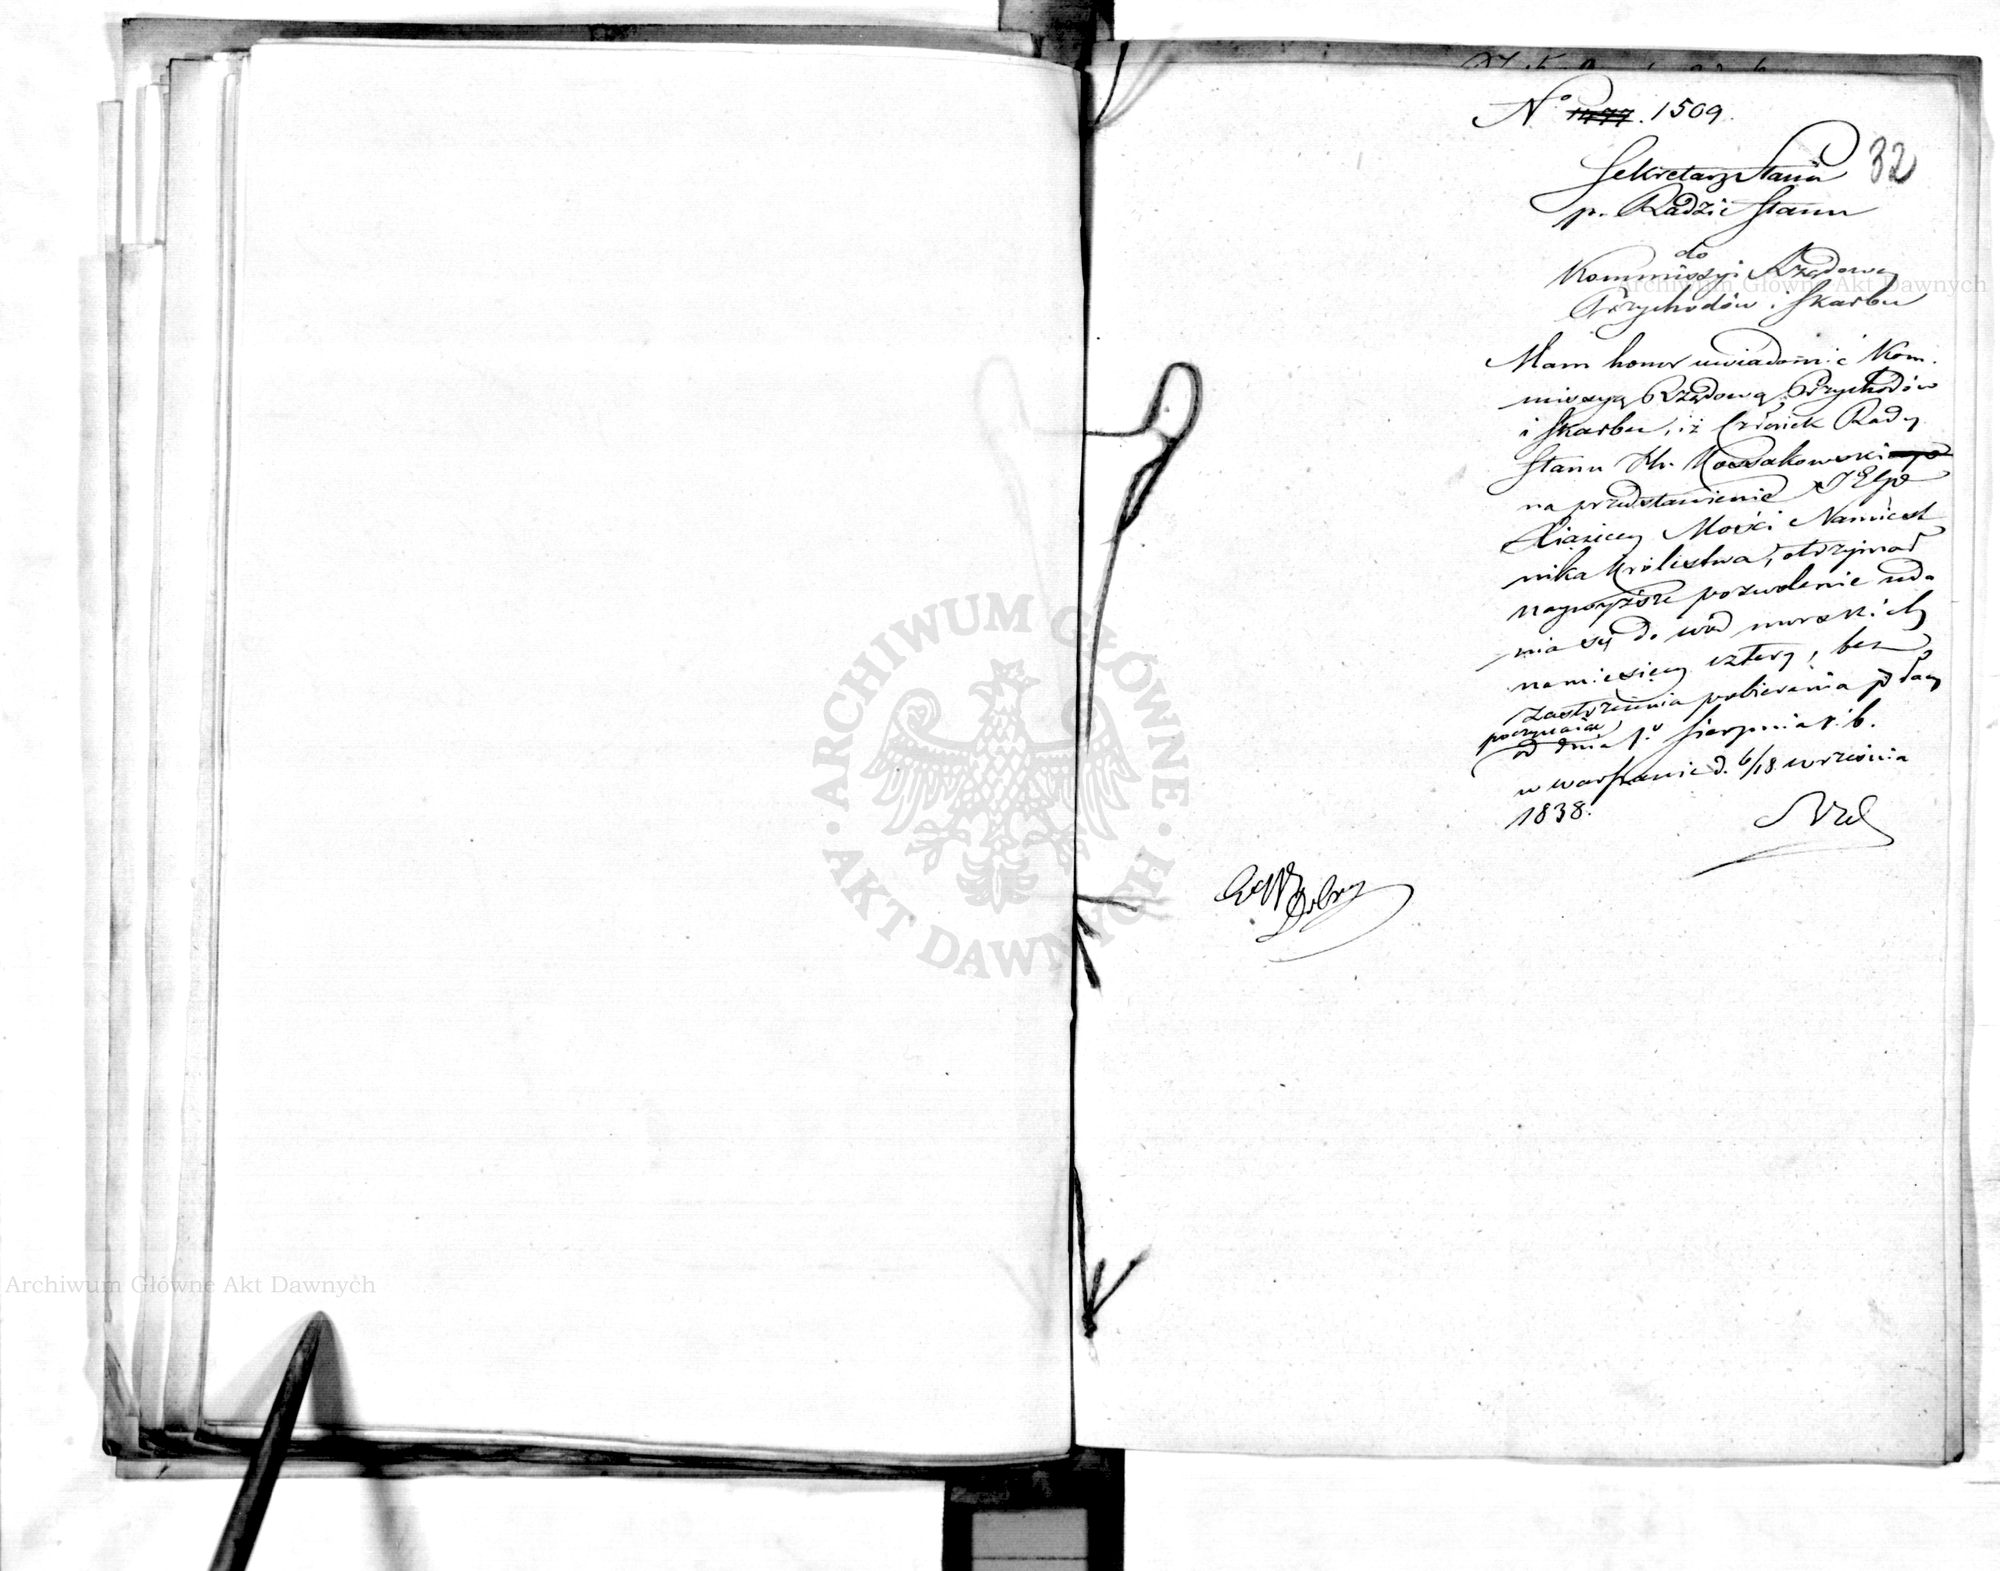 No 1499. 1509.
32
Sekretarz Stanu
p. Radzie Stanu
do
Kommissyi Rządowey
Przychodów i Skarbu
Mam honor uwiadomić Kom-
missyą Rządową Przychodów
i Skarbu, iż Członek Rady
Stanu Hr. Kossakowski
na przedstawienie JO
Xiążęcey Mości Namiest
nika Królestwa, otrzymał
naywyższe pozwolenie uda
nia się do wód morskich
na miesięcy cztery, bez
zastrzeżenia pobierania płacy
poczynając
od dnia 1o Sierpnia r. b.
w Warszawie d. 6/18 września
1838.
ARCHIWUM GŁÓWNE
AKT DAWNYCH
Archiwum Główne Akt Dawnych
Archiwum Główne Akt Dawnych